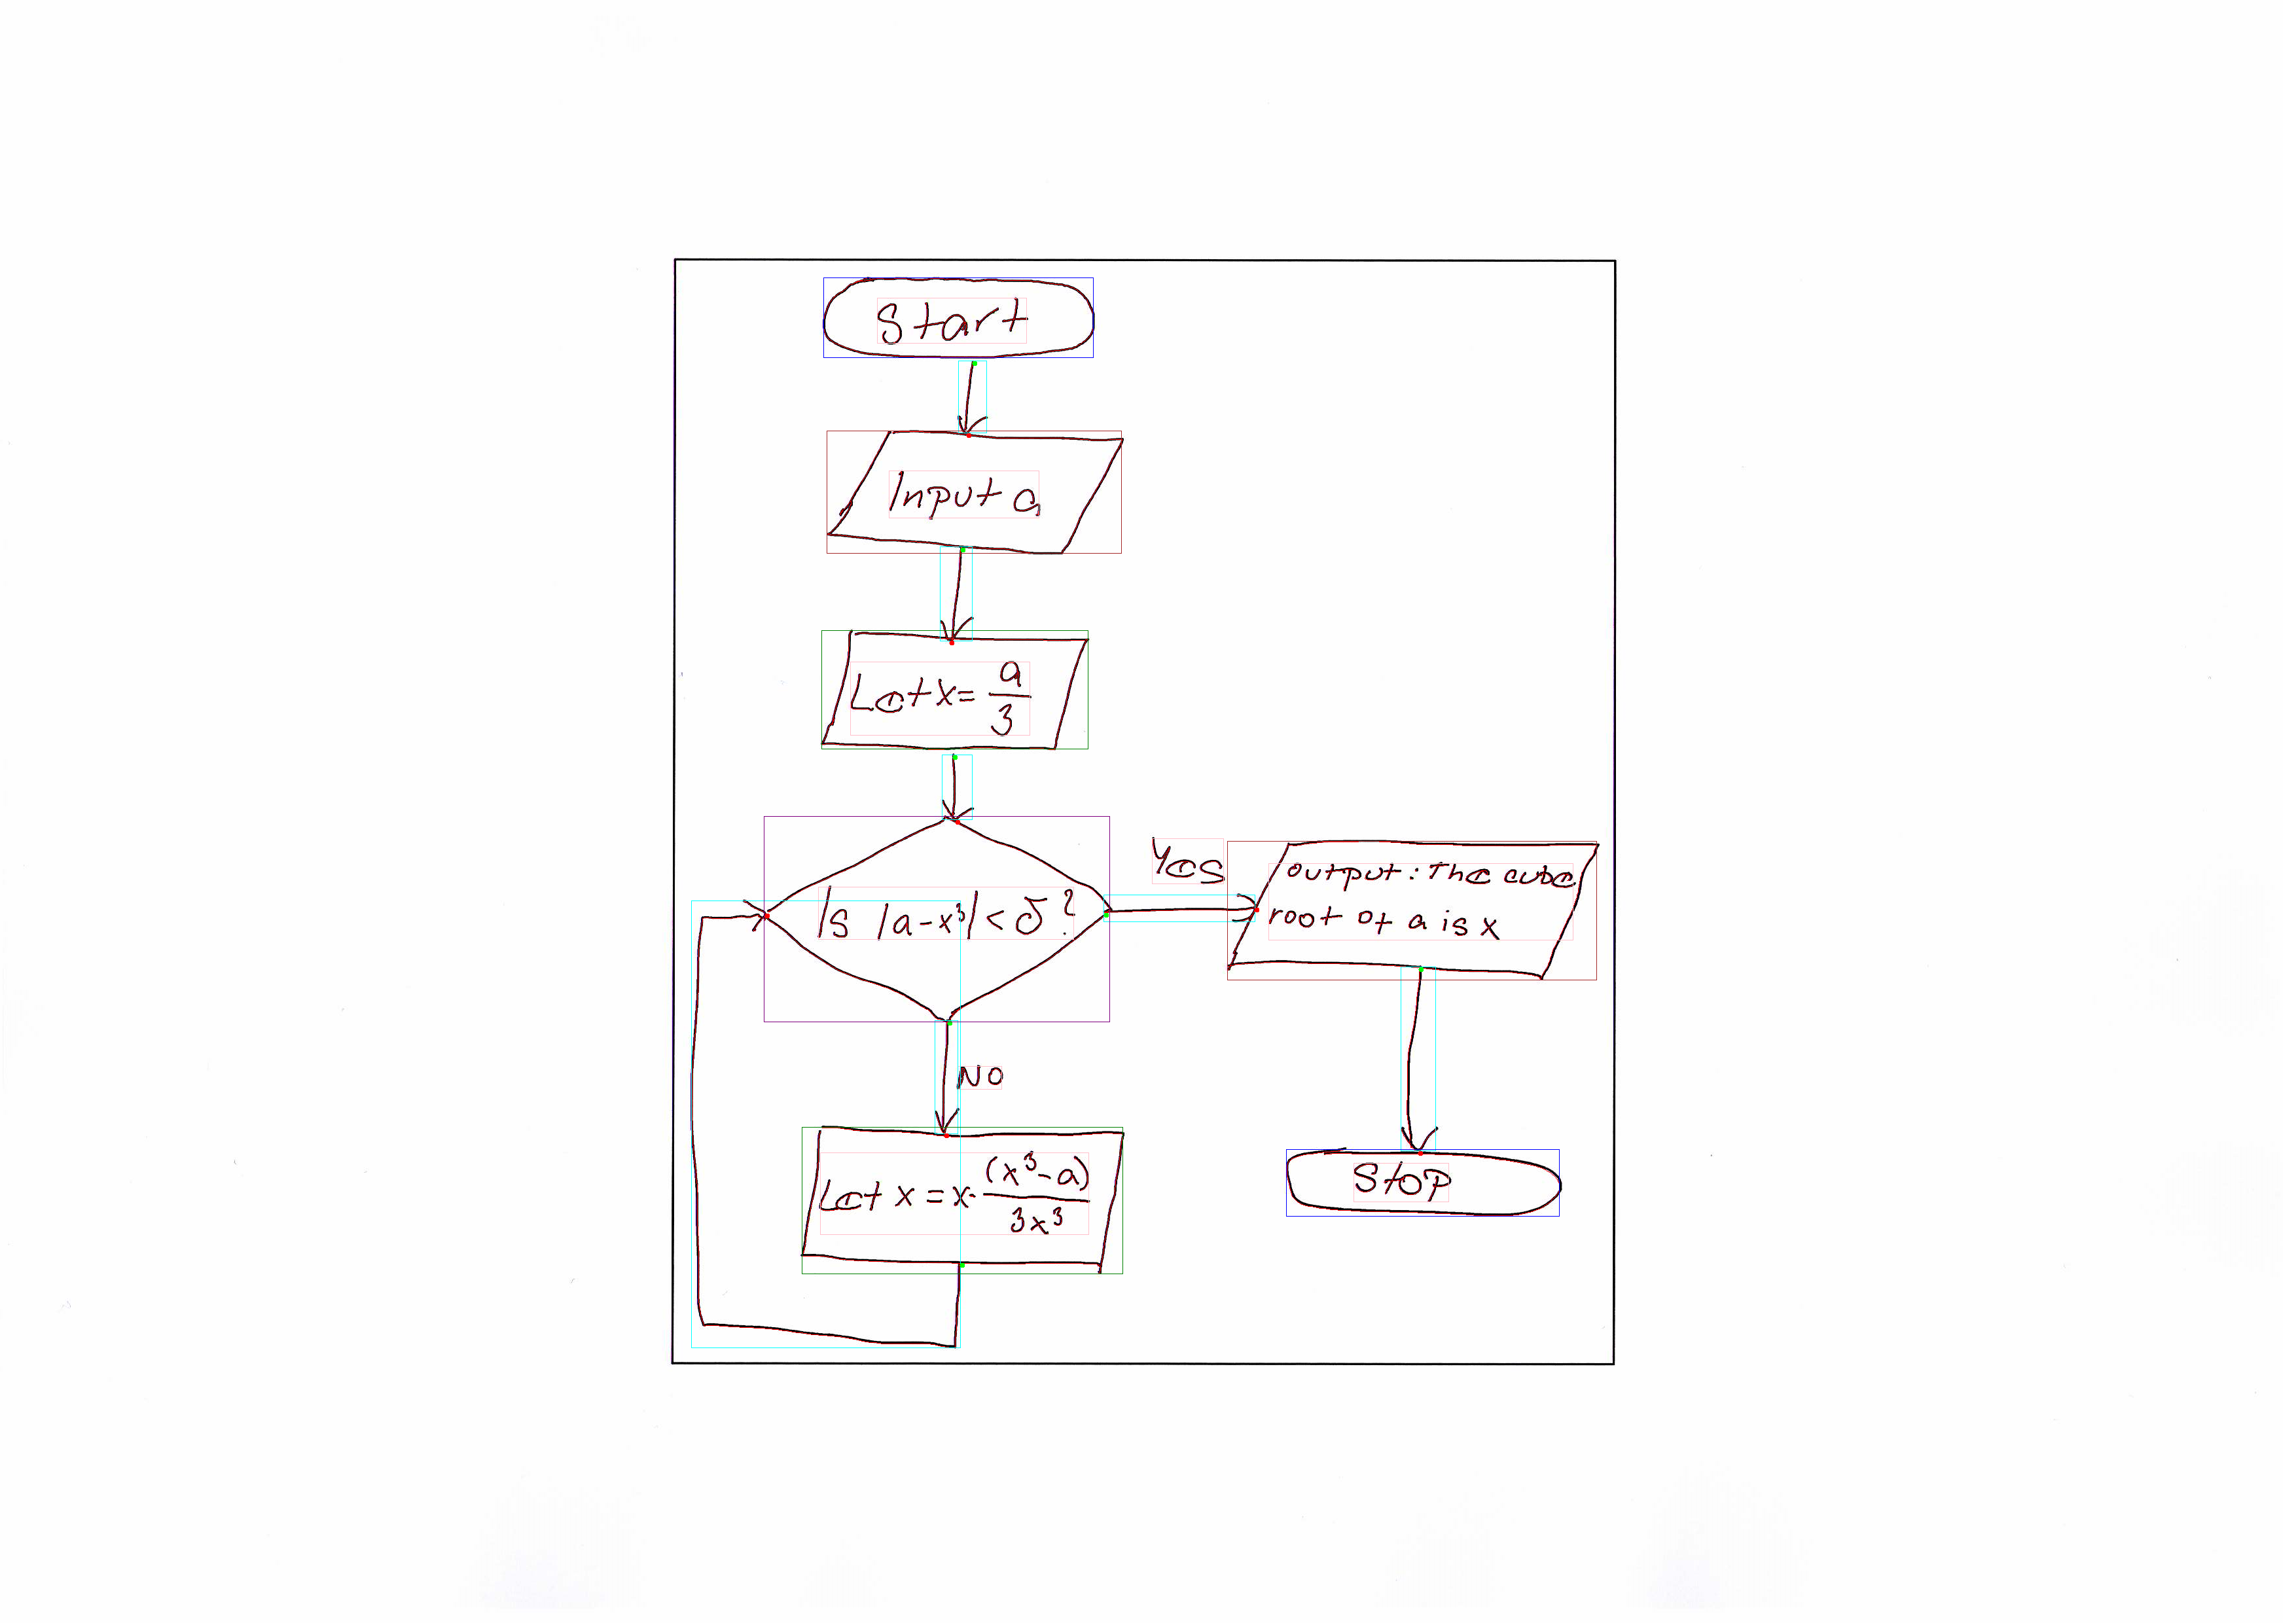 Start
Input a
Let x = a/3
Is |a-x³| < δ?
Yes
output: The cube
root of a is x
No
Let x = x - (x³-a)/3x³
Stop